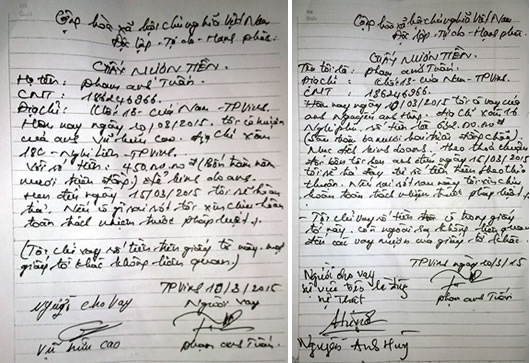 Cộng hòa xã hội chủ nghĩa Việt Nam
Độc lập - Tự do - Hạnh phúc
GIẤY MƯỢN TIỀN
Họ tên: phạm anh Tuấn.
CMT: 186246966.
Địa chỉ: Khối 16 - cửa Nam - TP Vinh.
Hôm nay ngày 10/03/2015 tôi có mượn
của anh Vũ hữu cao. địa chỉ xóm
18C - Nghi liên - TP Vinh.
Với số tiền: 450.000.000đ (Bốn trăm năm
mươi triệu đồng) để kinh doanh.
Hẹn đến ngày 15/03/2015 tôi sẽ hoàn
trả. Nếu có gì sai sót tôi xin chịu hoàn
toàn trách nhiệm trước pháp luật.
(Tôi chỉ vay số tiền trên giấy tờ này. mọi
giấy tờ khác không liên quan.)
TP Vinh 10/3/2015
Người cho vay
Người vay
Vũ hữu cao
phạm anh Tuấn.
Cộng hòa xã hội chủ nghĩa Việt Nam
Độc lập - Tự do - Hạnh phúc.
GIẤY MƯỢN TIỀN.
Tên tôi là: phạm anh Tuấn.
Địa chỉ: Khối 16 - cửa Nam - TP Vinh.
CMT: 186246966.
Hôm nay ngày 10/03/2015 tôi có vay của
anh Nguyễn anh Hùng. địa chỉ xóm 16
Nghi phú. số tiền là
Mục đích kinh doanh. Theo thỏa thuận
hai bên tôi hẹn anh đến ngày 15/03/2015
tôi sẽ trả đầy đủ số tiền theo thỏa
thuận. Nếu sai sót sau này tôi xin chịu
hoàn toàn trách nhiệm trước pháp luật.
- Tôi chỉ vay số tiền trên có trong giấy
tờ này. còn ngoài ra không liên quan
đến các vay mượn của giấy tờ khác
TP Vinh ngày 10/3/15
Người cho vay
phạm anh Tuấn
Nguyễn Anh Hùng